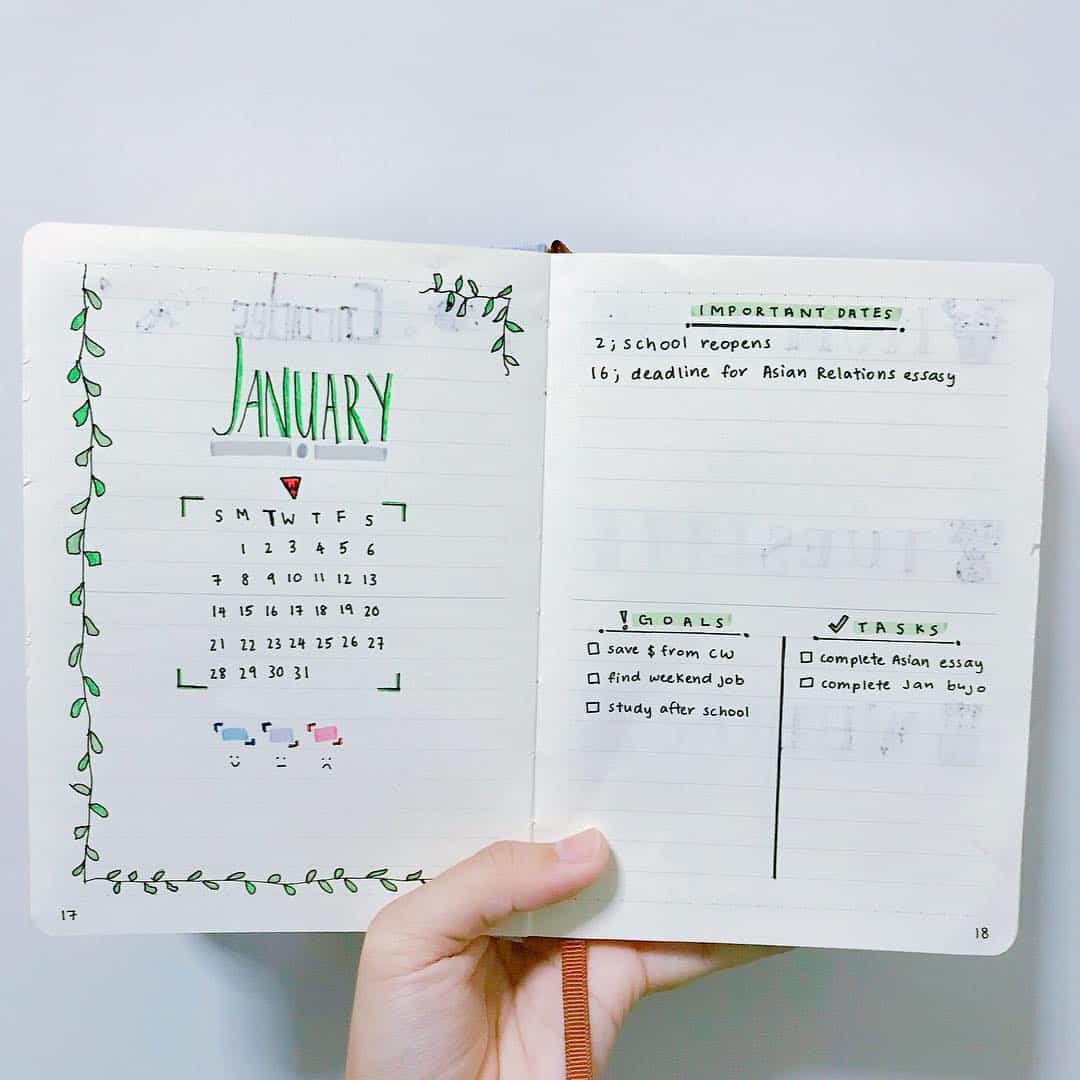 JANUARY
S M T W T F S
1 2 3 4 5 6
7 8 9 10 11 12 13
14 15 16 17 18 19 20
21 22 23 24 25 26 27
28 29 30 31
17
IMPORTANT DATES
2; school reopens
16; deadline for Asian Relations essasy
! GOALS
save $ from CW
find weekend job
study after school
TASKS
complete Asian essay
complete Jan bujo
18